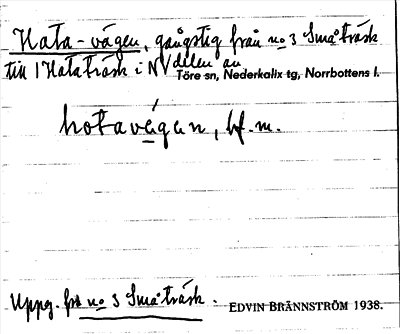 Hata-vägen, gångstig från no 3 Småträsk
till 1 Hataträsk i NV delen av
Töre sn, Nederkalix tg, Norrbottens l.
hotavägen, bf. m.
Uppg. frå no 3 Småträsk.
EDVIN BRÄNNSTRÖM 1938.